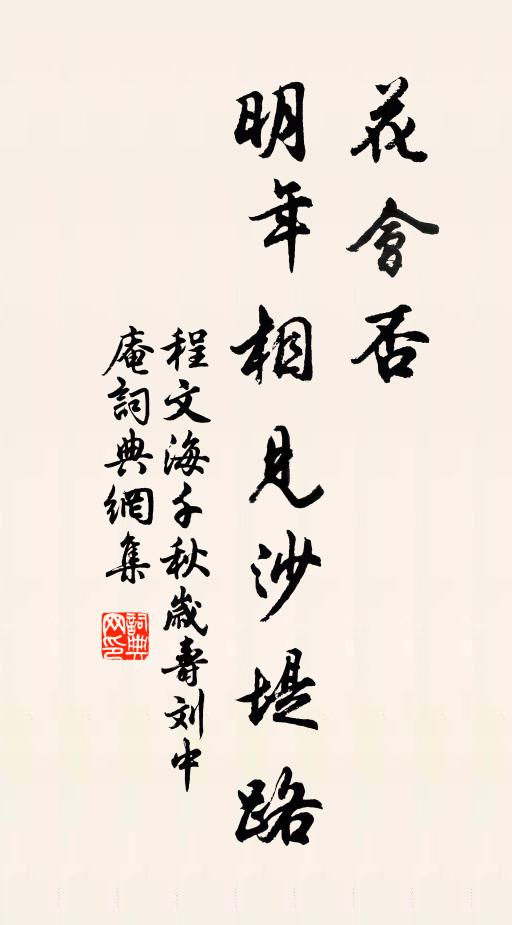 花會否
明年相見沙堤路
程文海千秋歲壽刘中
庵詞典網集
詞典网印